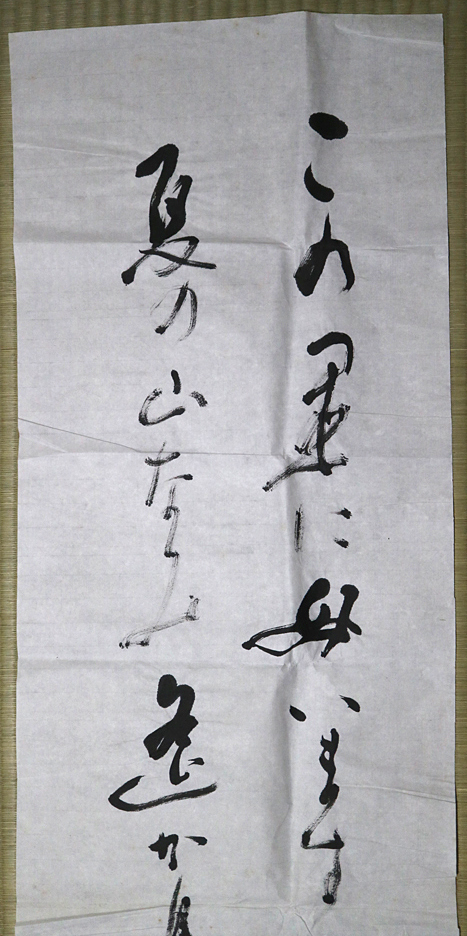 この に母います
夏の山なみ遙か